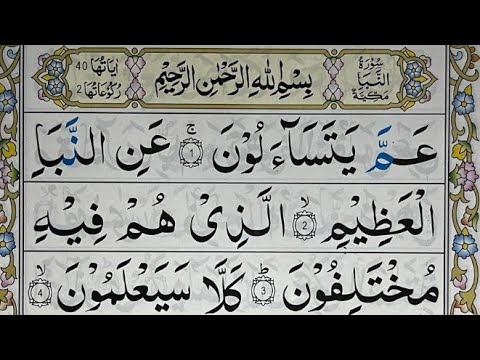 سُوْرَةُ النَّبَاِ مَكِّيَّةٌ
بِسْمِ اللهِ الرَّحْمٰنِ الرَّحِيْمِ
اٰيَاتُهَا 40 رُكُوْعَاتُهَا 2
عَمَّ يَتَسَآءَلُوْنَ ۚ 1 عَنِ النَّبَاِ
الْعَظِيْمِ ۙ 2 الَّذِىْ هُمْ فِيْهِ
مُخْتَلِفُوْنَ ؕ 3 كَلَّا سَيَعْلَمُوْنَ ۙ 4